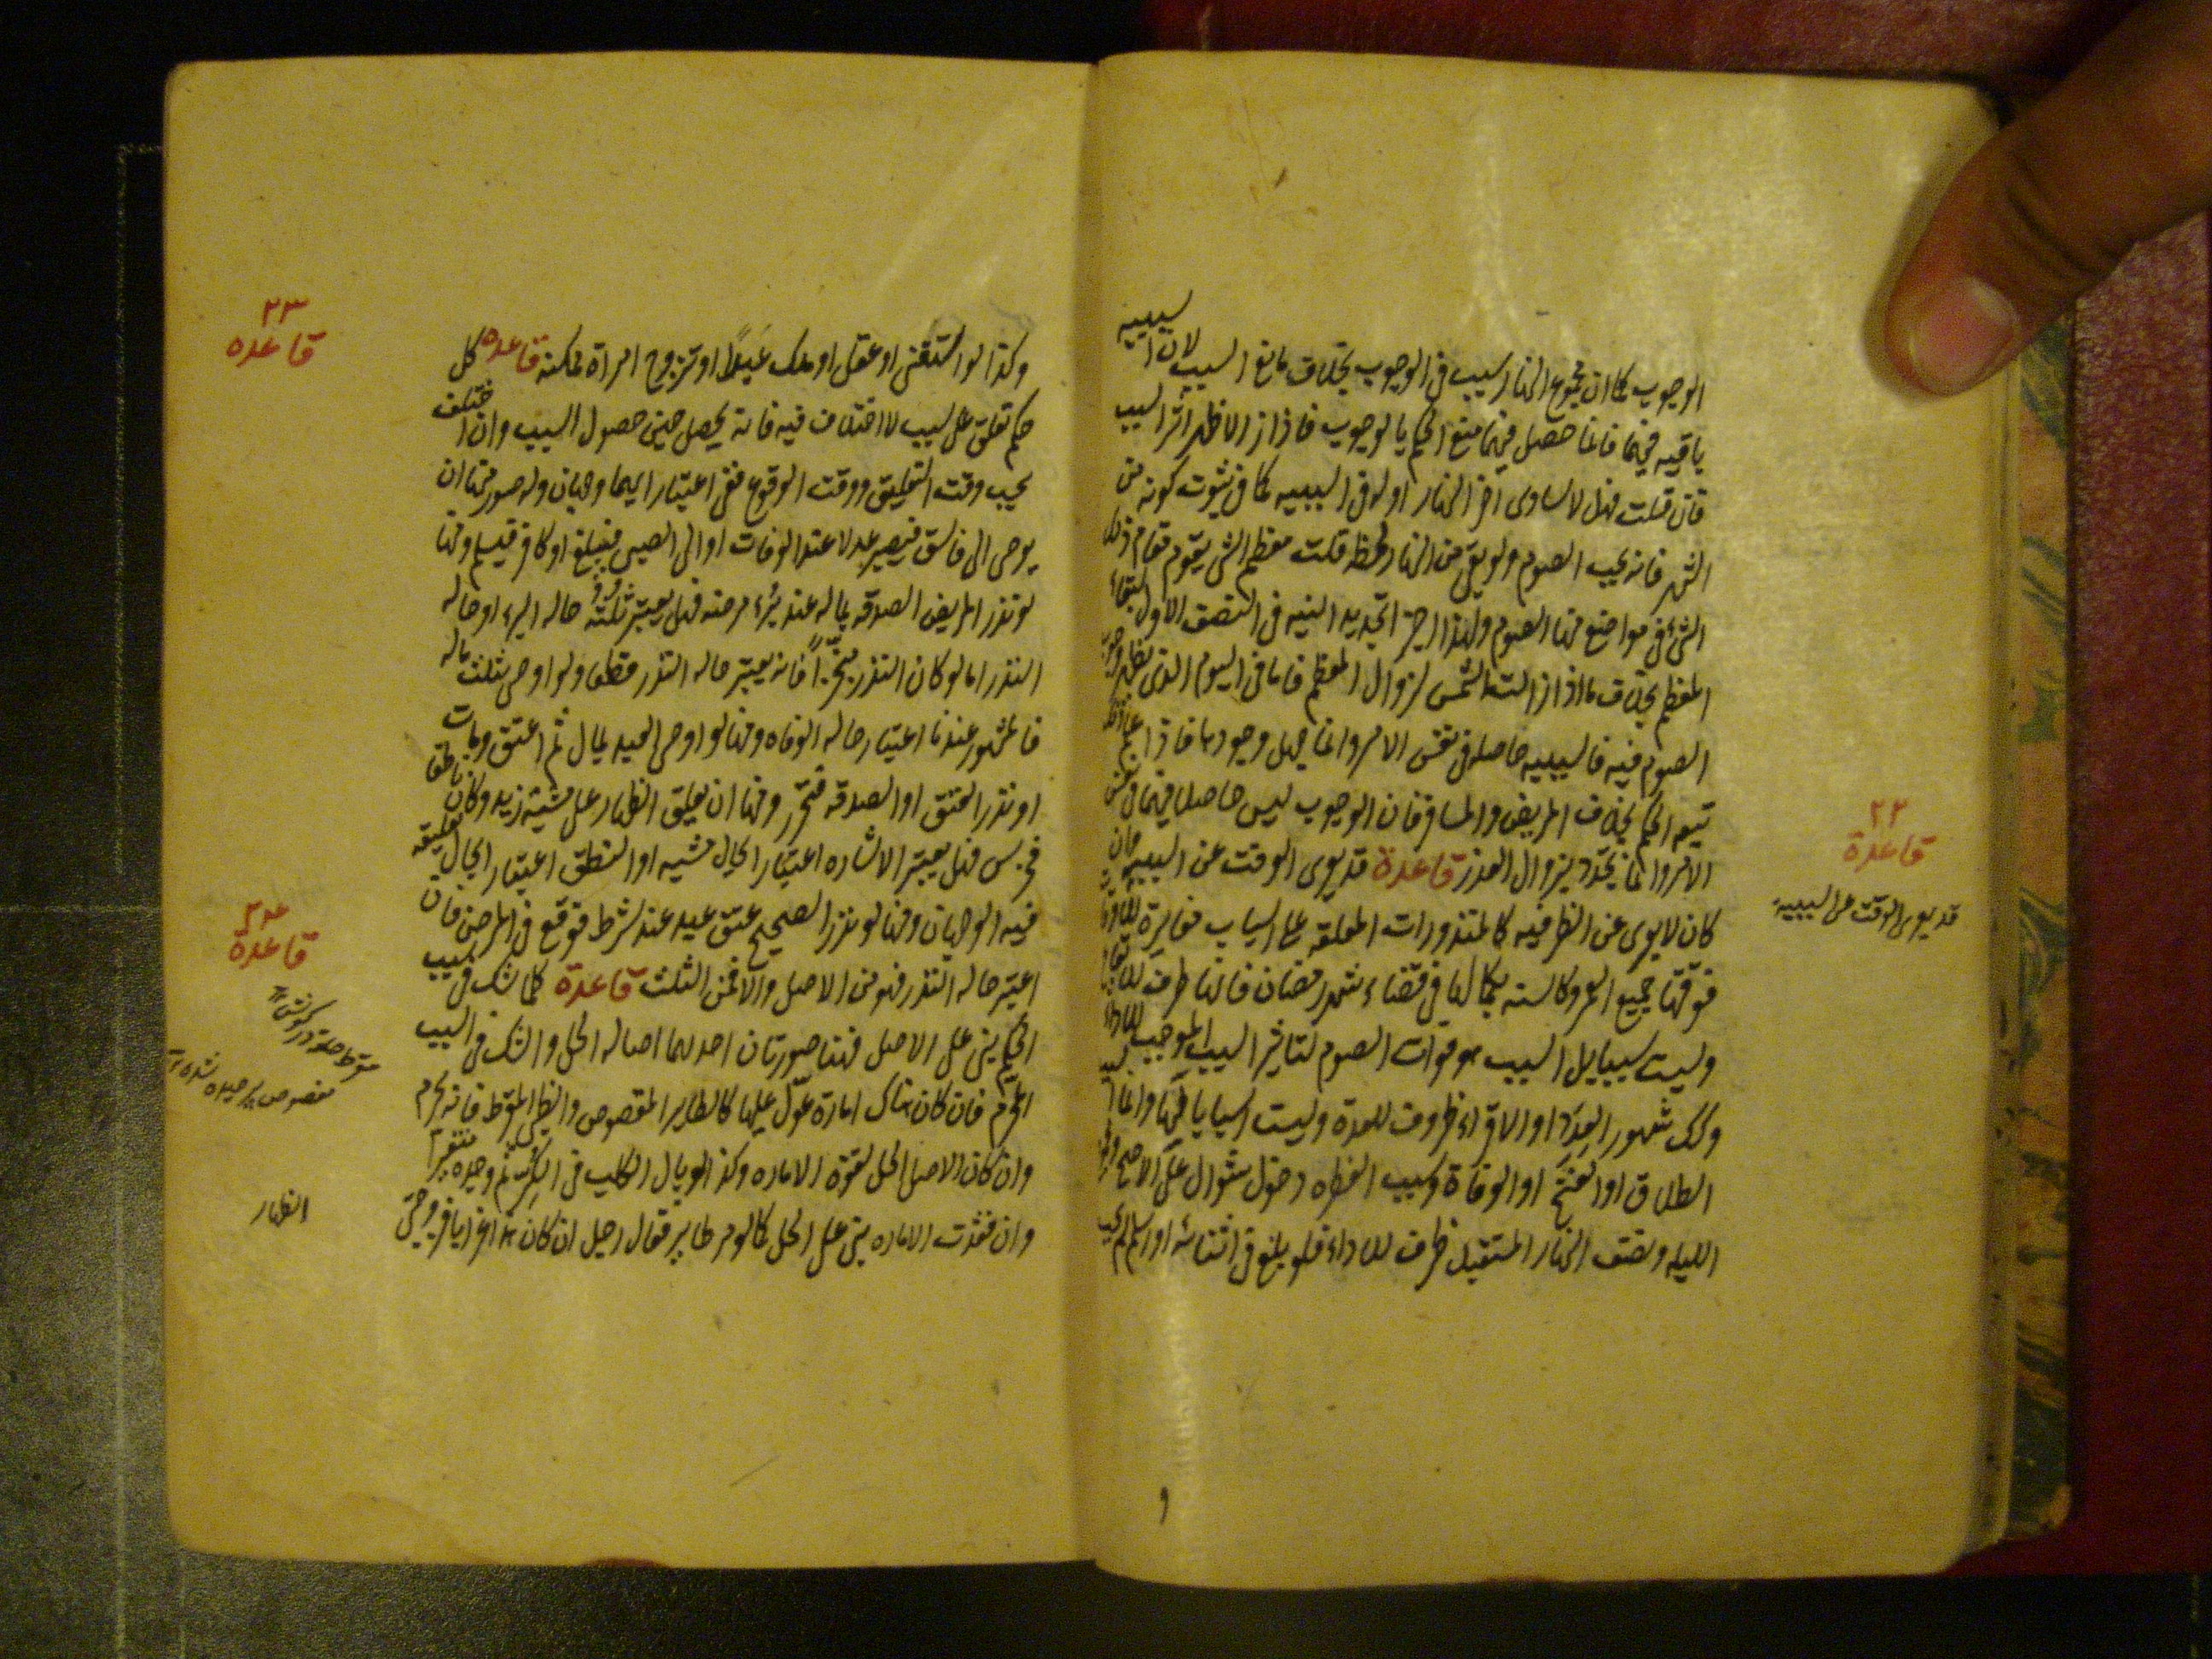 الوجوب كما ان مجموع النهار سبب فى الوجوب بخلاف مانع السبب لان السببيه
باقيه فيهما فانما حصل فيهما منع الحكم بالوجوب فاذا زالا ظهر اثر السبب
فان قلت فهل لا ساوى اخر النهار اوله فى السببيه كما فى ثبوت كونه من
الشهر فانه يجب الصوم ولو بقى من النهار لحظه قلت معظم الشى يقوم مقام ذلك
الشئ فى مواضع منها الصوم ولهذا اجزء تجديد النيه فى النصف الاول لبقاء
المعظم بخلاف ما اذا زالت الشمس لزوال المعظم فاما فى اليوم الذى يظهر وجوب
الصوم فيه فالسببيه حاصله فى نفس الامر وانما جهل وجودها فاذا علم
تبعه الحكم بخلاف المريض والمسافر فان الوجوب ليس حاصلا فيهما فى نفس
الامر وانما تجدد بزوال العذر قاعدة قد يعرى الوقت عن السببيه وان
كان لا يعرى عن الظرفيه كالمنذورات المعلقه على اسباب مغايرة للاوقات
فوقتها جميع العمر وكالسنه بكمالها فى قضاء شهر رمضان فانها ظرف للقضاء
وليست سببا بل السبب هو فوات الصوم لتاثير السبب الموجب للاداء
وكك شهور العِدَد او الاقراء ظروف للعدة وليست اسبابا لها وانما السبب
الطلاق او الفسخ او الوفاة وسبب الفطره دخول شوال على الاصح وفى
الليله ونصف النهار المستقبل ظرف للاداء فلو بلغ فى اثنائه او اسلم لم يجب
و
٢٢
قاعدة
قد يعرى الوقت عن السببية
وكذا لو استغنى او عقل او ملك عَبدًا او تزوج امراة ممكنه قاعده كل
حكم تعلق على سبب لا اختلاف فيه فانه يحصل حين حصول السبب وان اختلف
بحسب وقت التعليق ووقت الوقوع ففى اعتبار ايهما وجهان وله صور منها ان
يوصى الى فاسق فيصير عدلا عند الوفات او الى الصبى فيبلغ او كافر فيسلم ومنها
لو نذر المريض الصدقه بماله عند بُرء مرضه فهل يعتبر ثُلثُه حاله البرء او حاله
النذر اما لو كان النذر منجّزاً فانه يعتبر حاله النذر قطعا ولو اوصى بثلث ماله
فالمشهور عندنا اعتبار حاله الوفاه ومنها لو اوصى العبد بمال ثم اعتق ومات
او نذر العتق او الصدقه فتحرر ومنها ان يعلق الظهار على مشيئة زيد وكان ناطقا
فخرس فهل يعتبر الاشاره اعتبارا بحال مشيه او النطق اعتبارا بحال تعليقه
فيه الوجهان ومنها لو نذر الصحيح عتق عبد عند شرط فوقع فى المرض فان
اعتبر حاله النذر فهو من الاصل والا فمن الثلث قاعدة كلما شك فى سبب
الحكم بنى على الاصل فهنا صورتان احدهما اصاله الحل والشك فى السبب
المحرم فان كان هناك امارة عوّل عليها كالطاير المقصوص والظبى المقرط فانه يحرم
وان كان الاصل الحل لقوة الاماره وكذا لو بال الكلب فى الكُرّ ثم وجده متغيرا
وان فقدت الاماره بنى على الحل كما لو مر طاير فقال رجل ان كان هذا غرابا فزوجتى
٢٣
قاعده
٢٤
قاعدة
الظهار